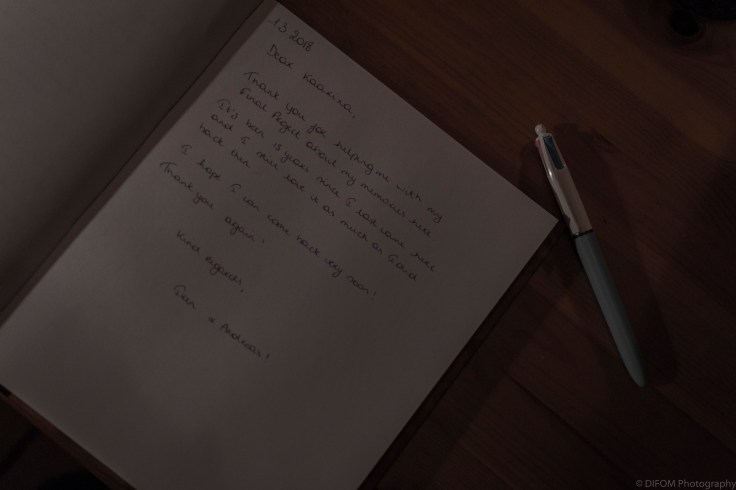 1.3.2018
Dear Kaarina,
Thank you for helping me with my
Final Project about my memories here
It's been 15 years since I last came here
and I still love it as much as I did
back then
I hope I can come back very soon!
Thank you again!
Kind regards,
+ Andreas!
© DIFOM Photography